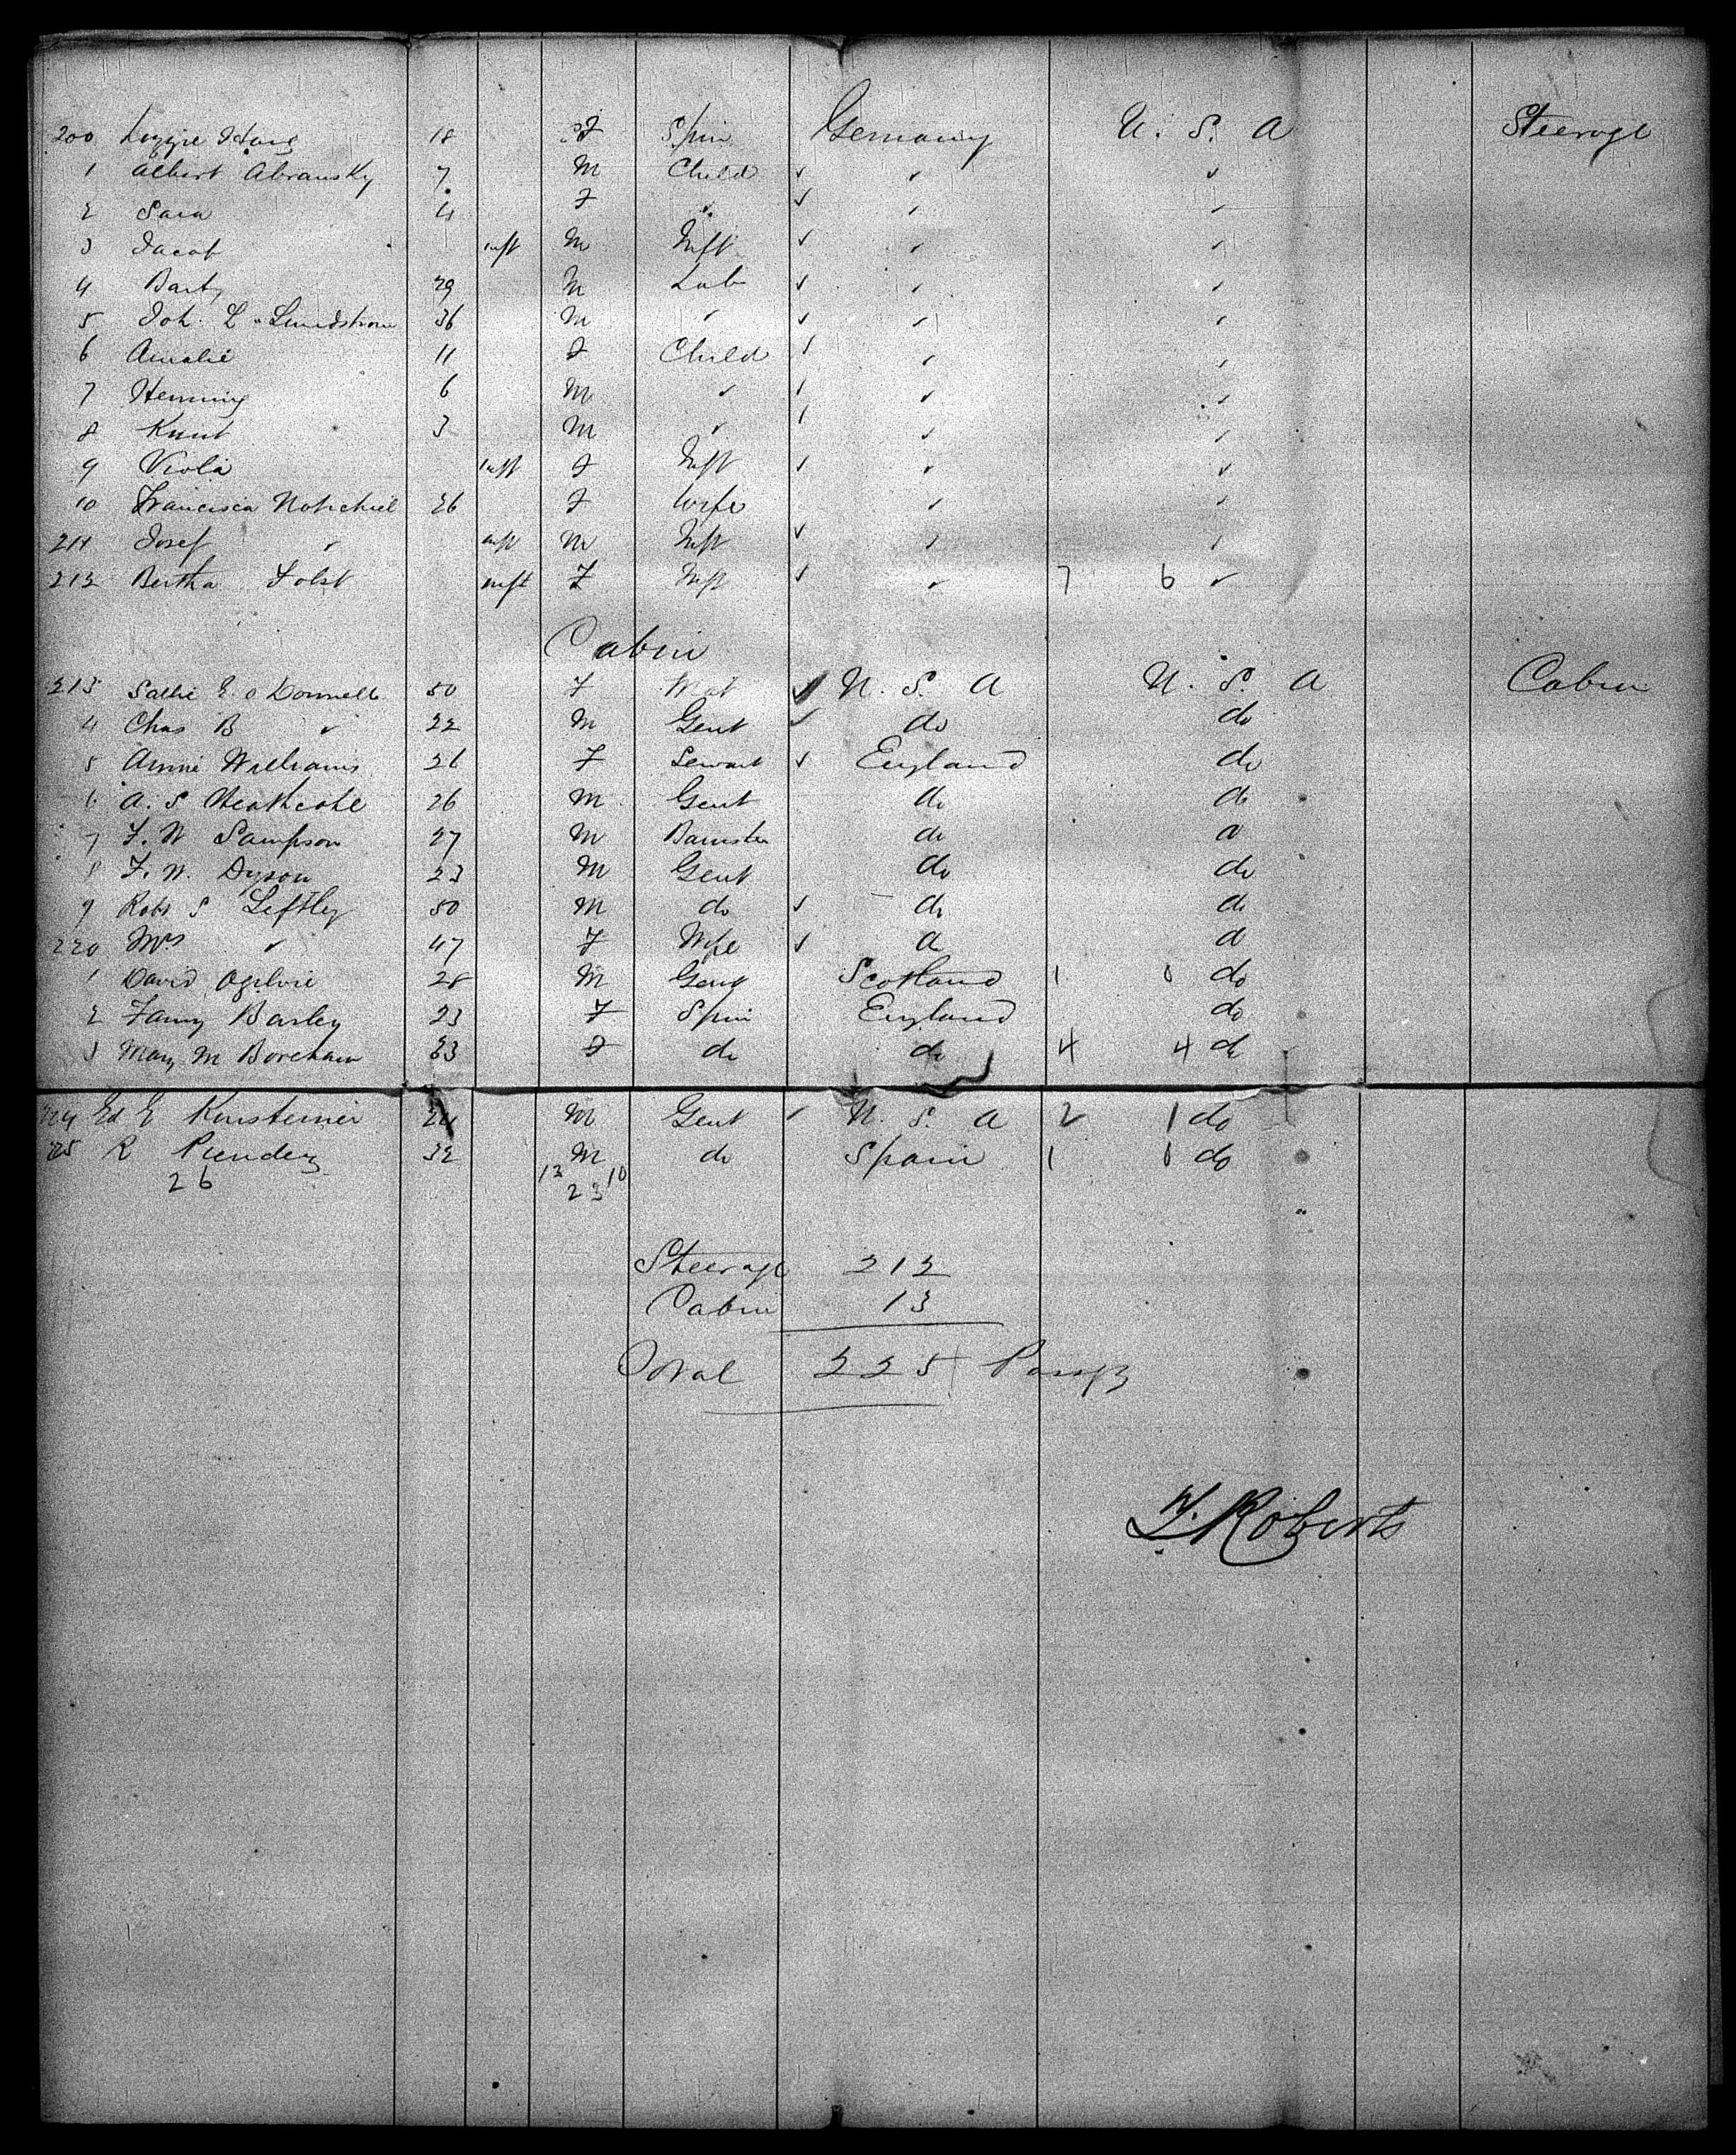 200 Lizzie 18 F Spin Germany U. S. A Steerage
1 Albert Abransky 7 M Child ✓ ✓ ✓
2 Sara 4 F ✓ ✓ ✓ ✓
3 Jacob inft M Inft ✓ ✓ ✓
4 Bart 29 M Lab ✓ ✓ ✓
5 Joh. L. Lundstrom 36 M ✓ ✓ ✓ ✓
6 Amalie 11 F Child ✓ ✓ ✓
7 Henning 6 M ✓ ✓ ✓ ✓
8 Knut 3 M ✓ ✓ ✓ ✓
9 Viola inft F Inft ✓ ✓ ✓
10 Francisca 26 F Wife ✓ ✓
211 Josef ✓ inft M Inft ✓ ✓ ✓
212 Bertha Folst inft F Inft ✓ ✓ 7 6 ✓
Cabin
213 Sallie E. o Donnell 50 F Mat ✓ U. S. A U. S. A Cabin
4 Chas B ✓ 22 M Gent ✓ do do
5 Annie Williams 26 F Servant ✓ England do
6 A. S Heathcote 26 M Gent do do
7 F. W Sampson 27 M Barrister do do
8 F. W. Dyson 23 M Gent do do
9 Robt S Leftley 50 M do ✓ do do
220 Mrs ✓ 47 F Wife ✓ do do
1 David Ogilvie 28 M Gent Scotland 1 0 do
2 Fanny Barley 23 F Spin England do
3 Mary M Boreham 23 F do do 4 4 do
224 Ed E 24 M Gent ✓ U. S. A 2 1 do
225 R 32 M do Spain 1 0 do
26 13 10
23
Steerage 212
Cabin 13
Total 225 Passgs
Roberts